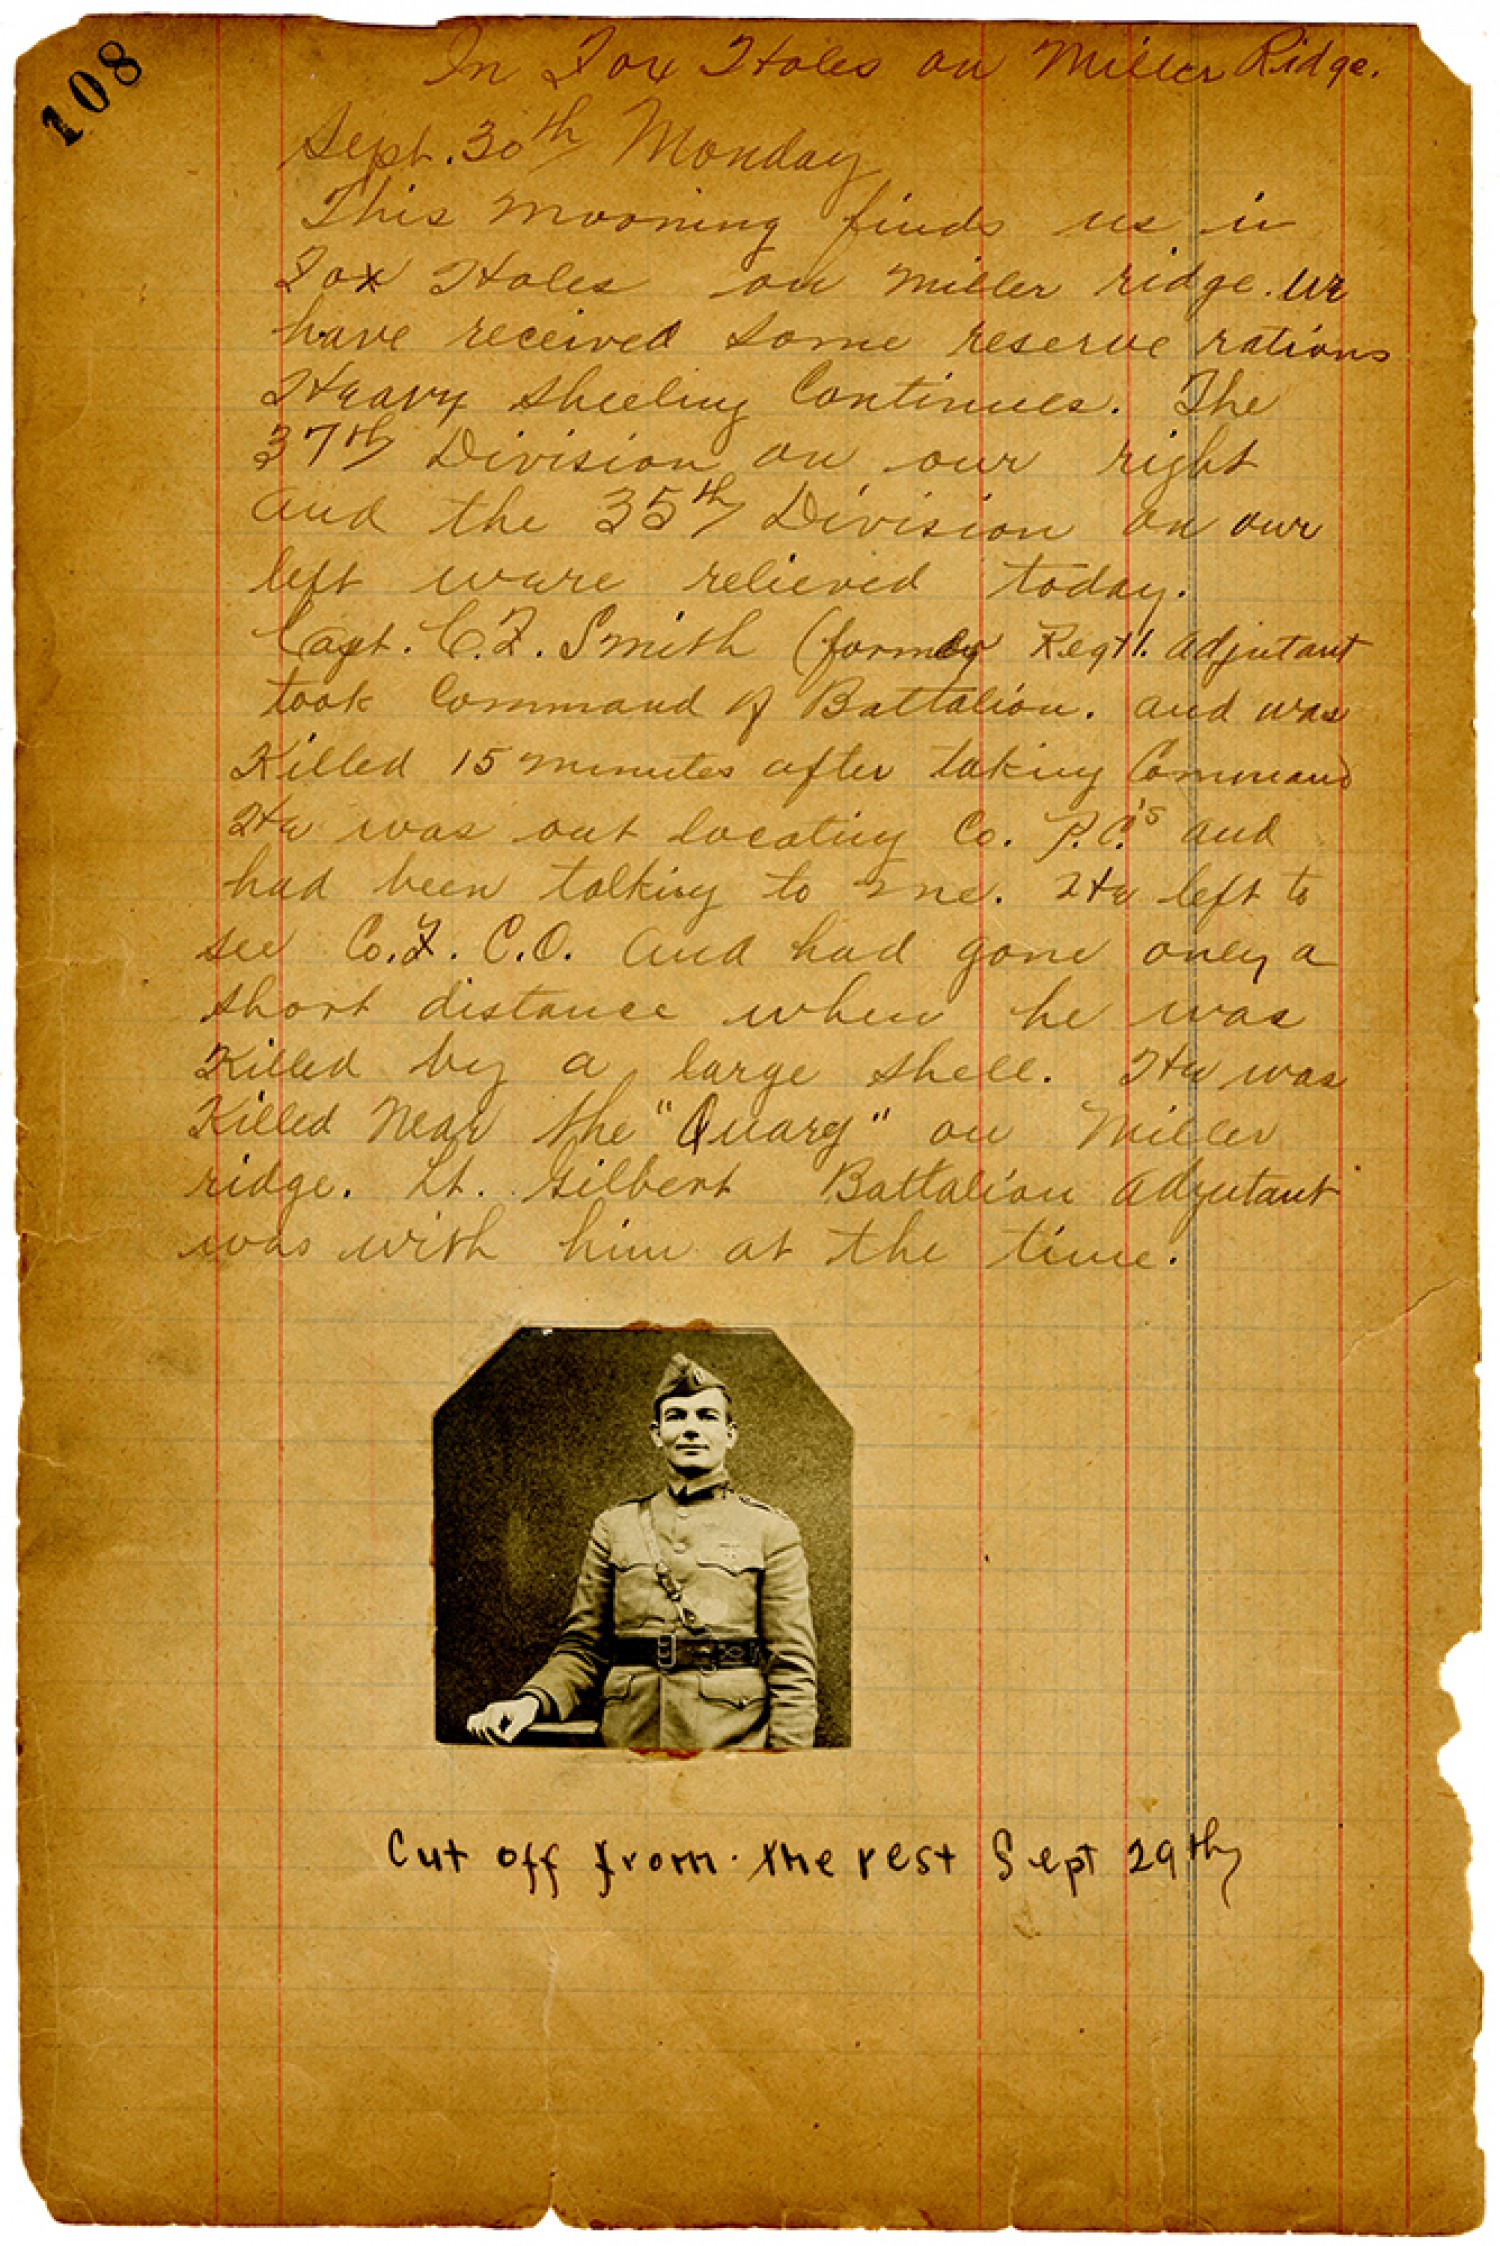 108
In Fox Holes on Miller Ridge.
Sept. 30th Monday
This Mooning finds us in
Fox Holes on Miller ridge. We
have received some reserve rations
Heavy Sheeling Continues. The
37th Division on our right
and the 35th Division on our
left ware relieved today.
Capt. C.F. Smith (former Regt'l. adjutant
took Command of Battalion. and was
Killed 15 minutes after taking Command
He was out locating Co. P.C.'s and
had been talking to me. He left to
see Co. F. C.O. and had gone only a
short distance when he was
Killed by a large shell. He was
Killed Near the "Quarey" on Miller
ridge. Lt. Gilbert Battalion Adjutant
was with him at the time.
Cut off from the rest Sept 29th